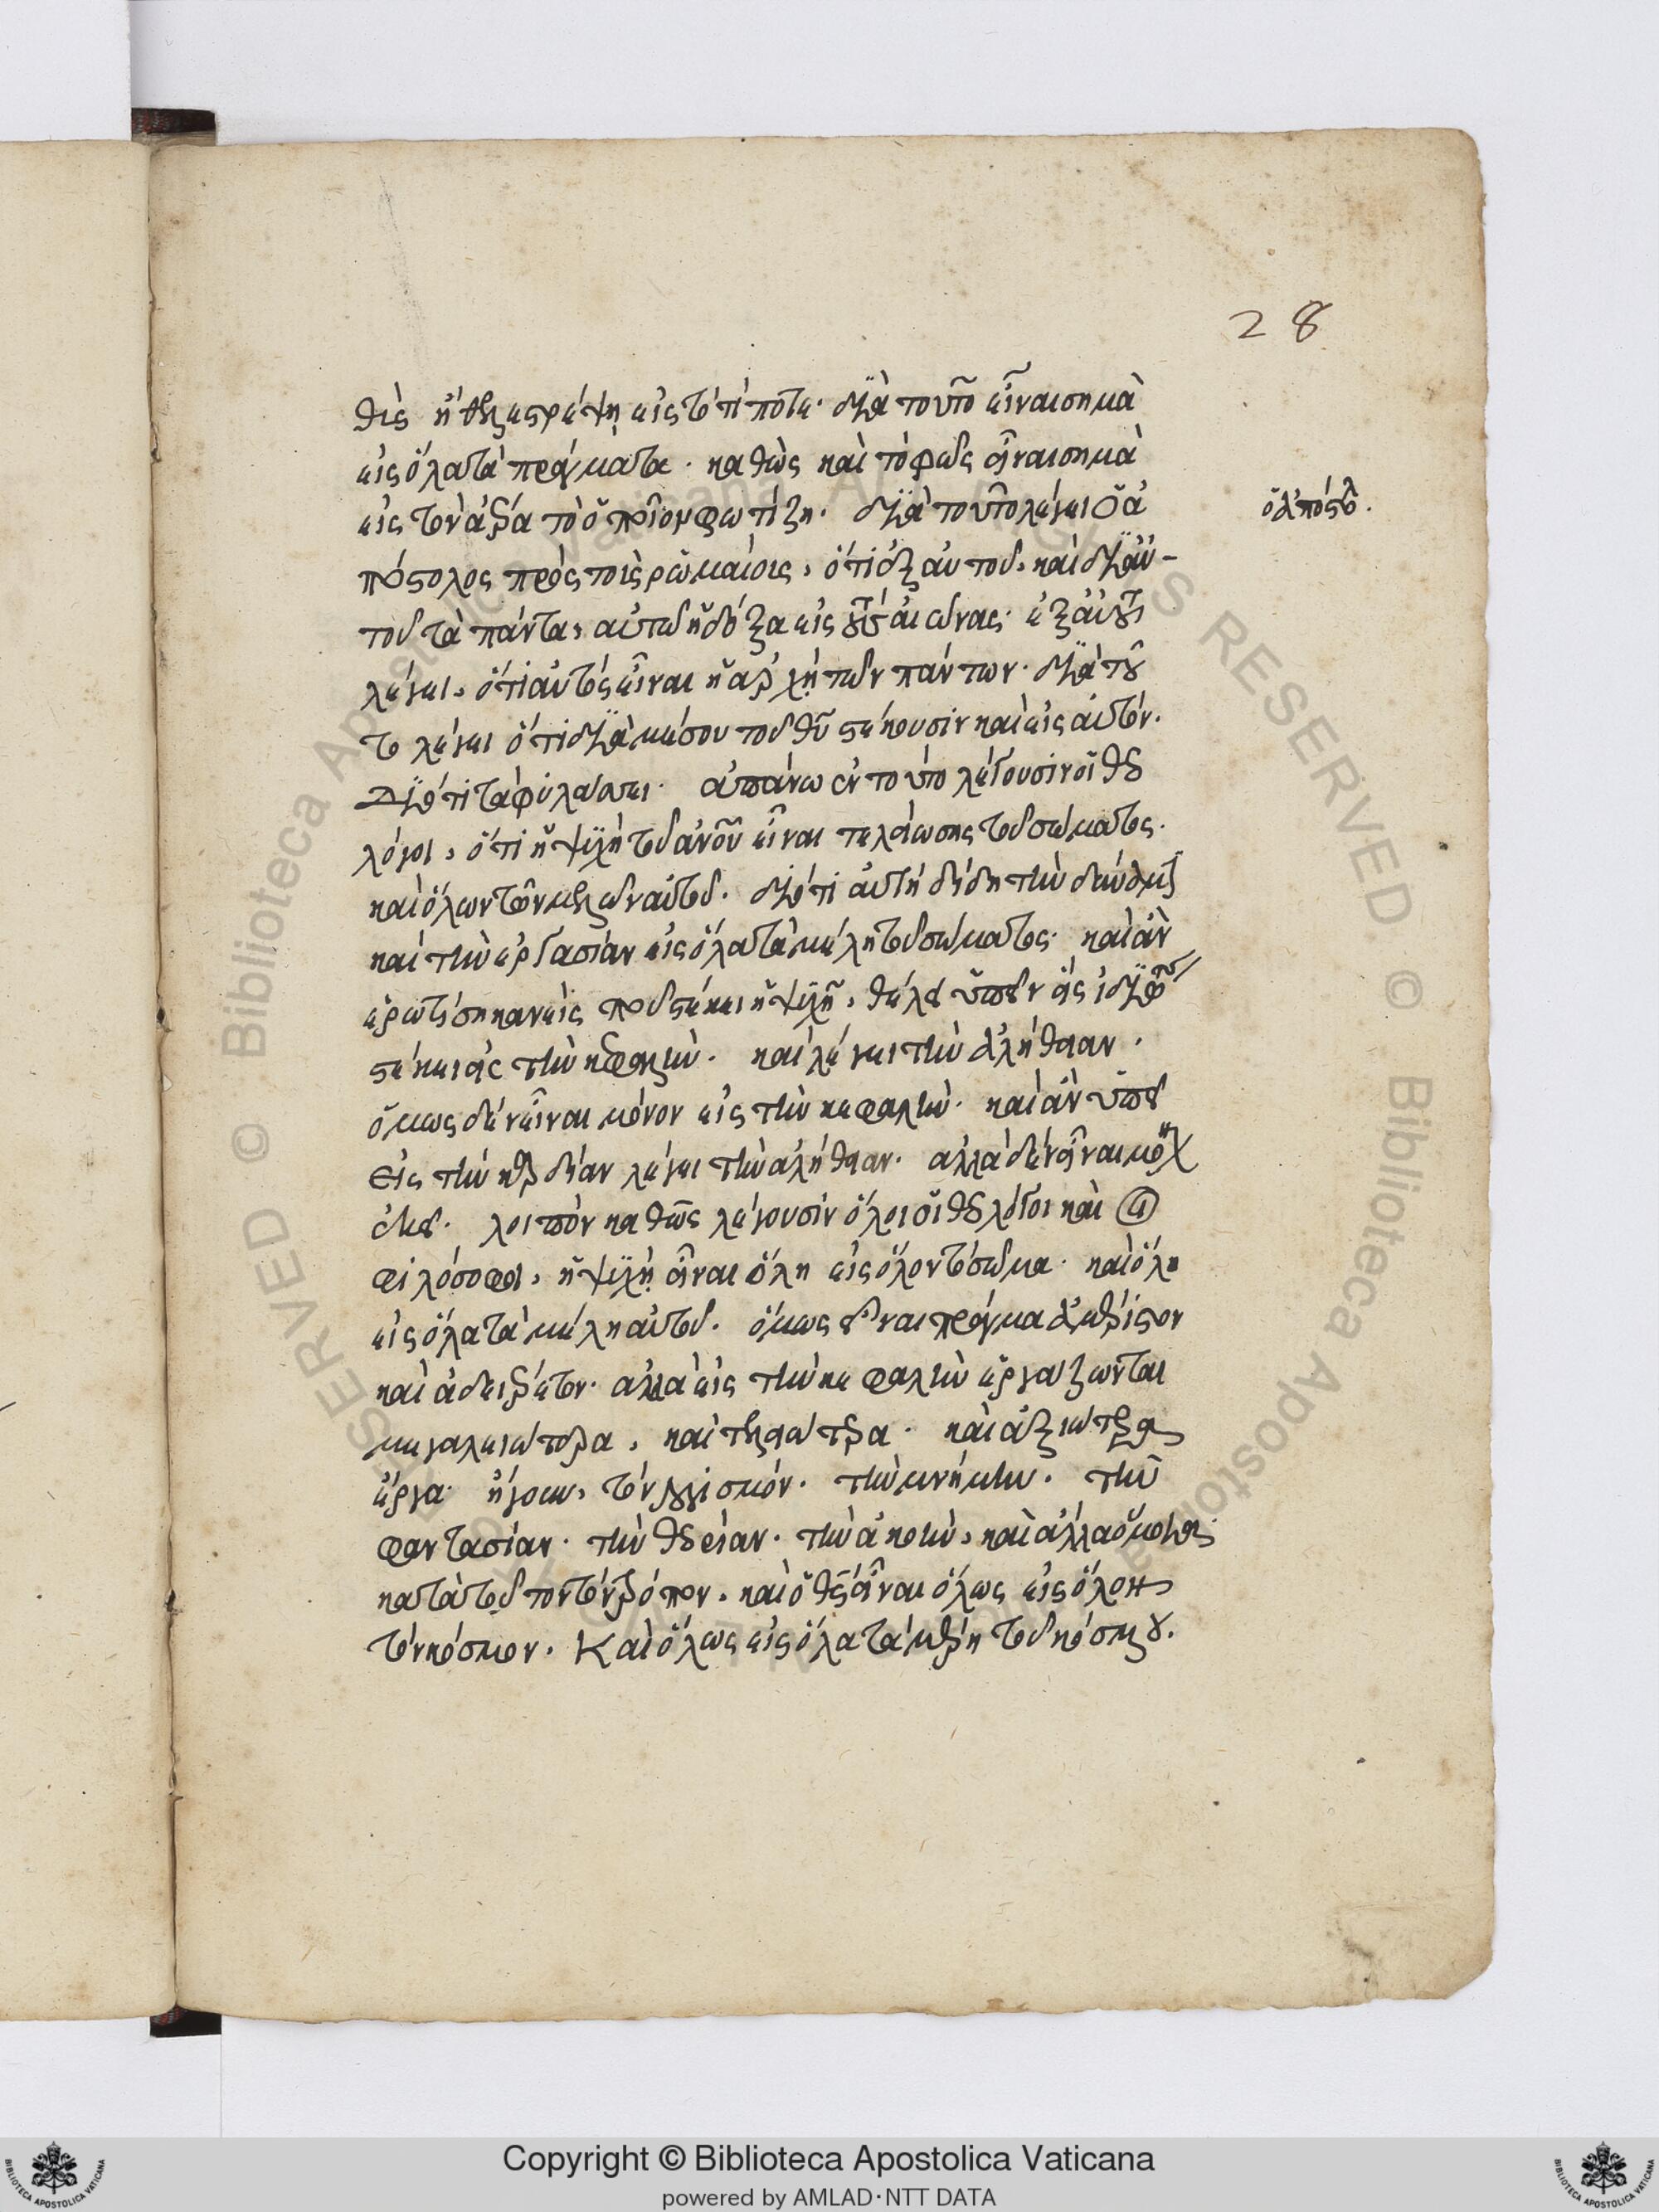 28
θὲς ἤθελε στρέψη εἰς τὸ τίποτε· διὰ τοῦτο εἶναι σημὰ
εἰς ὅλα τὰ πράγματα· καθὼς καὶ τὸ φῶς εἶναι σημὰ
εἰς τὸν ἀέρα τὸ ὁποῖον φωτίζη· διὰ τοῦτο λέγει ὁ ἀ
ὁ ἀπόστολ.
πόστολος πρὸς τοὶς ρωμαίοις, ὅτι ἐξ αὐτοῦ, καὶ δι' αὐ-
τοῦ τὰ πάντα, αὐτῶ ἡ δόξα εἰς τοὺς αἰῶνας· ἐξ αὐτοῦ
λέγει, ὅτι αὐτὸς εἶναι ἡ ἀρχὴ τῶν πάντων· διὰ τοῦ
το λέγει ὅτι διὰ μέσου τοῦ θῦ στέκουσιν καὶ εἰς αὐτόν.
Διότι τὰ φυλάει· ἀπάνω εἰς τοῦτο λέγουσιν οἱ θεο
λόγοι, ὅτι ἡ ψυχὴ τοῦ ἀνοῦ εἶναι τελείωσης τοῦ σώματος·
καὶ ὅλων τῶν μελῶν αὐτοῦ. διότι αὐτὴ δίδη τὴν δύναμιν
καὶ τὴν ἐργασίαν εἰς ὅλα τὰ μέλη τοῦ σώματος· καὶ ἂν
ἐρωτήση κανεὶς ποῦ στέκει ἡ ψυχὴ, θέλει εἰπεῖν
στέκει εἰς τὴν κεφαλὴν· καὶ λέγει τὴν ἀλήθειαν·
ὅμως δὲν εἶναι μόνον εἰς τὴν κεφαλὴν· καὶ ἂν εἰπεῖ
εἰς τὴν καρδίαν λέγει τὴν ἀλήθειαν· ἀλλὰ δὲν εἶναι μόνον
ἐκεῖ· λοιπὸν καθὼς λέγουσιν ὅλοι οἱ θεολόγοι καὶ οἱ
φιλόσοφοι, ἡ ψυχὴ εἶναι ὅλη εἰς ὅλον τὸ σῶμα· καὶ ὅλη
εἰς ὅλα τὰ μέλη αὐτοῦ. ὅμως εἶναι πράγμα ἀμέριστον
καὶ ἀδειαίρετον· ἀλλὰ εἰς τὴν κεφαλὴν ἐργάζωνται
μεγαλειώτερα, καὶ τελειώτερα· καὶ ἀξιώτερα
ἔργα· ἤγουν, τὸν λογισμόν· τὴν μνήμην· τὴν
φαντασίαν· τὴν θεωρίαν· τὴν ἀκοὴν, καὶ ἄλλα ὅμοια·
κατὰ τοῦτον τὸν τρόπον, καὶ ὁ θς εἶναι ὅλως εἰς ὅλον
τὸν κόσμον. Καὶ ὅλως εἰς ὅλα τὰ μέρη τοῦ κόσμου.
Copyright © Biblioteca Apostolica Vaticana
powered by AMLAD·NTT DATA